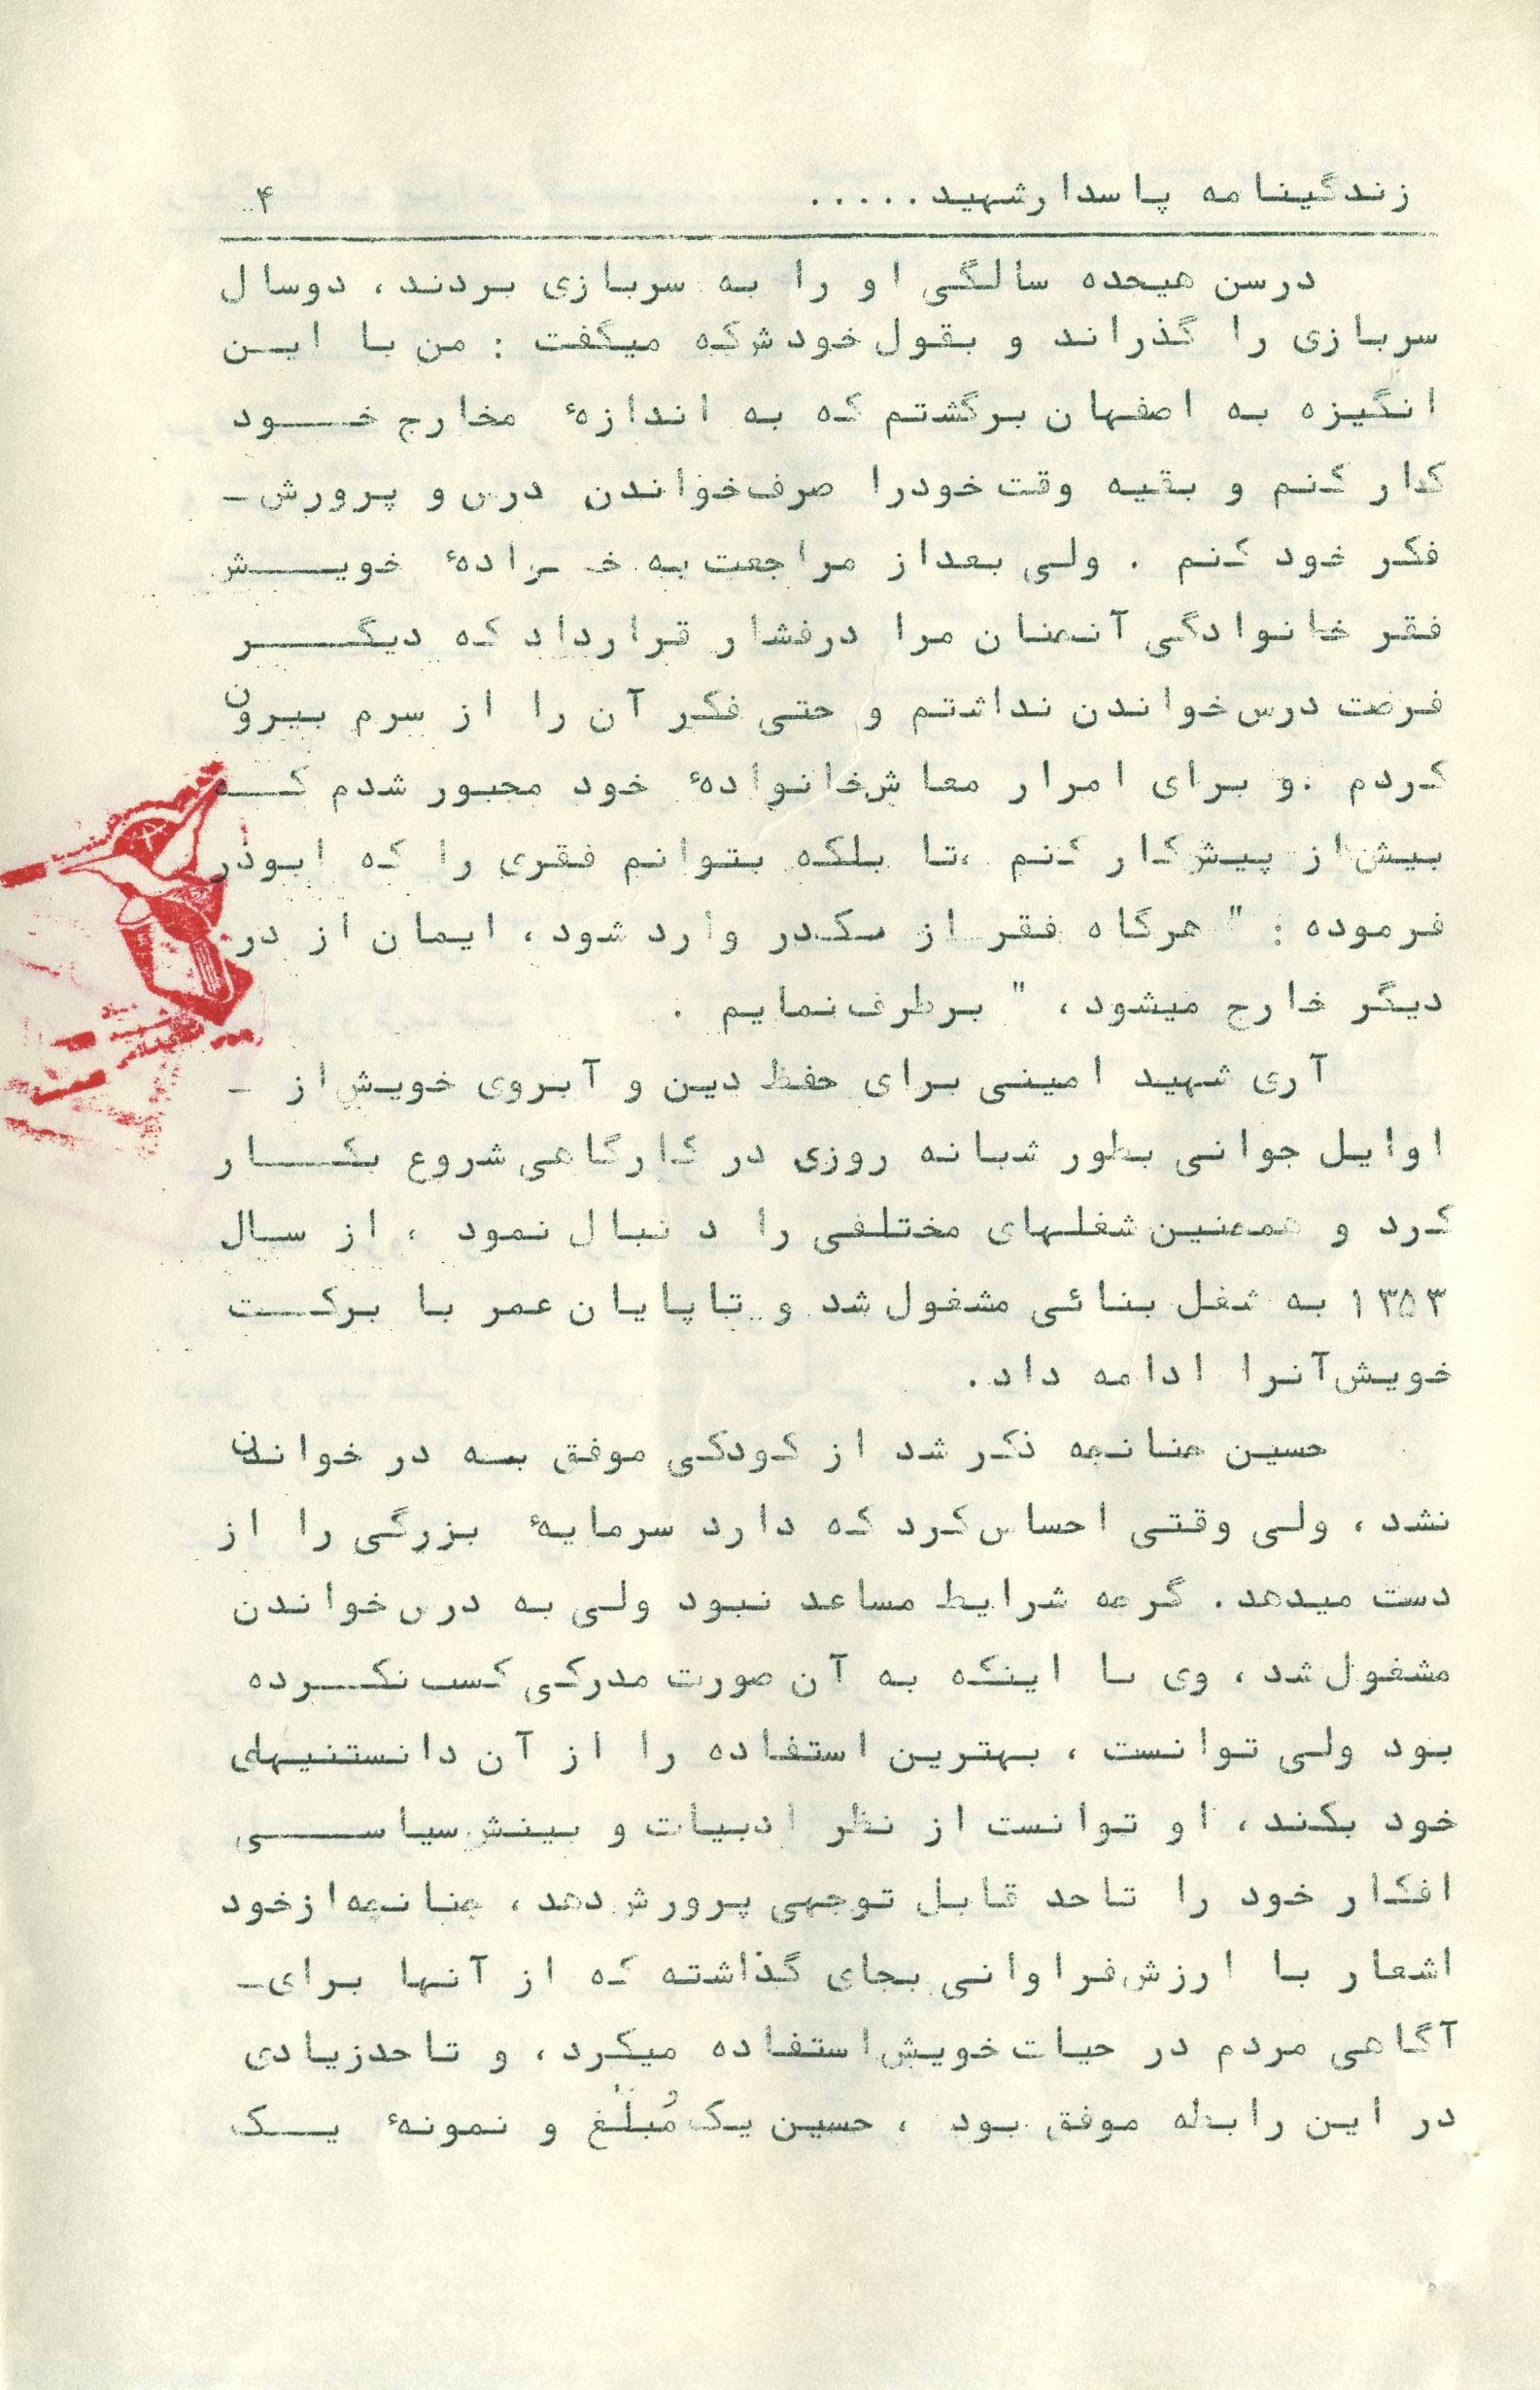 زندگینامه پاسدار شهید..... ۴
درسن هیجده سالگی او را به سربازی بردند، دوسال
سربازی را گذراند و بقول خودش که میگفت : من با این
انگیزه به اصفهان برگشتم که به اندازهٔ مخارج خود
کار کنم و بقیه وقت خودرا صرف خواندن درس و پرورش -
فکر خود کنم . ولی بعداز مراجعت به خویش
فقر خانوادگی آنچنان مرا درفشار قرارداد که دیگر
فرصت درس خواندن نداشتم و حتی فکر آن را از سرم بیرون
کردم . و برای امرار معاش خانوادهٔ خود مجبور شدم که
بیش از پیش کار کنم ،تا بلکه بتوانم فقری را که ابوذر
فرموده : " هرگاه فقر از یکدر وارد شود، ایمان از در
دیگر خارج میشود، " برطرف نمایم .
آری شهید امینی برای حفظ دین و آبروی خویش از -
اوایل جوانی بطور شبانه روزی در کارگاهی شروع بکار
کرد و همچنین شغلهای مختلفی را دنبال نمود ، از سال
۱۳۵۳ به شغل بنائی مشغول شد و تا پایان عمر با برکت
خویش آنرا ادامه داد.
حسین چنانچه ذکر شد از کودکی موفق به در خواندن
نشد، ولی وقتی احساس کرد که دارد سرمایهٔ بزرگی را از
دست میدهد. گرچه شرایط مساعد نبود ولی به درس خواندن
مشغول شد، وی با اینکه به آن صورت مدرکی کسب نکرده
بود ولی توانست ، بهترین استفاده را از آن دانستنیهای
خود بکند، او توانست از نظر ادبیات و بینش سیاسی
افکار خود را تاحد قابل توجهی پرورش دهد، چنانچه ازخود
اشعار با ارزش فراوانی بجای گذاشته که از آنها برای -
آگاهی مردم در حیات خویش استفاده میکرد، و تا حدزیادی
در این رابطه موفق بود ، حسین یک مُبلّغ و نمونهٔ یک